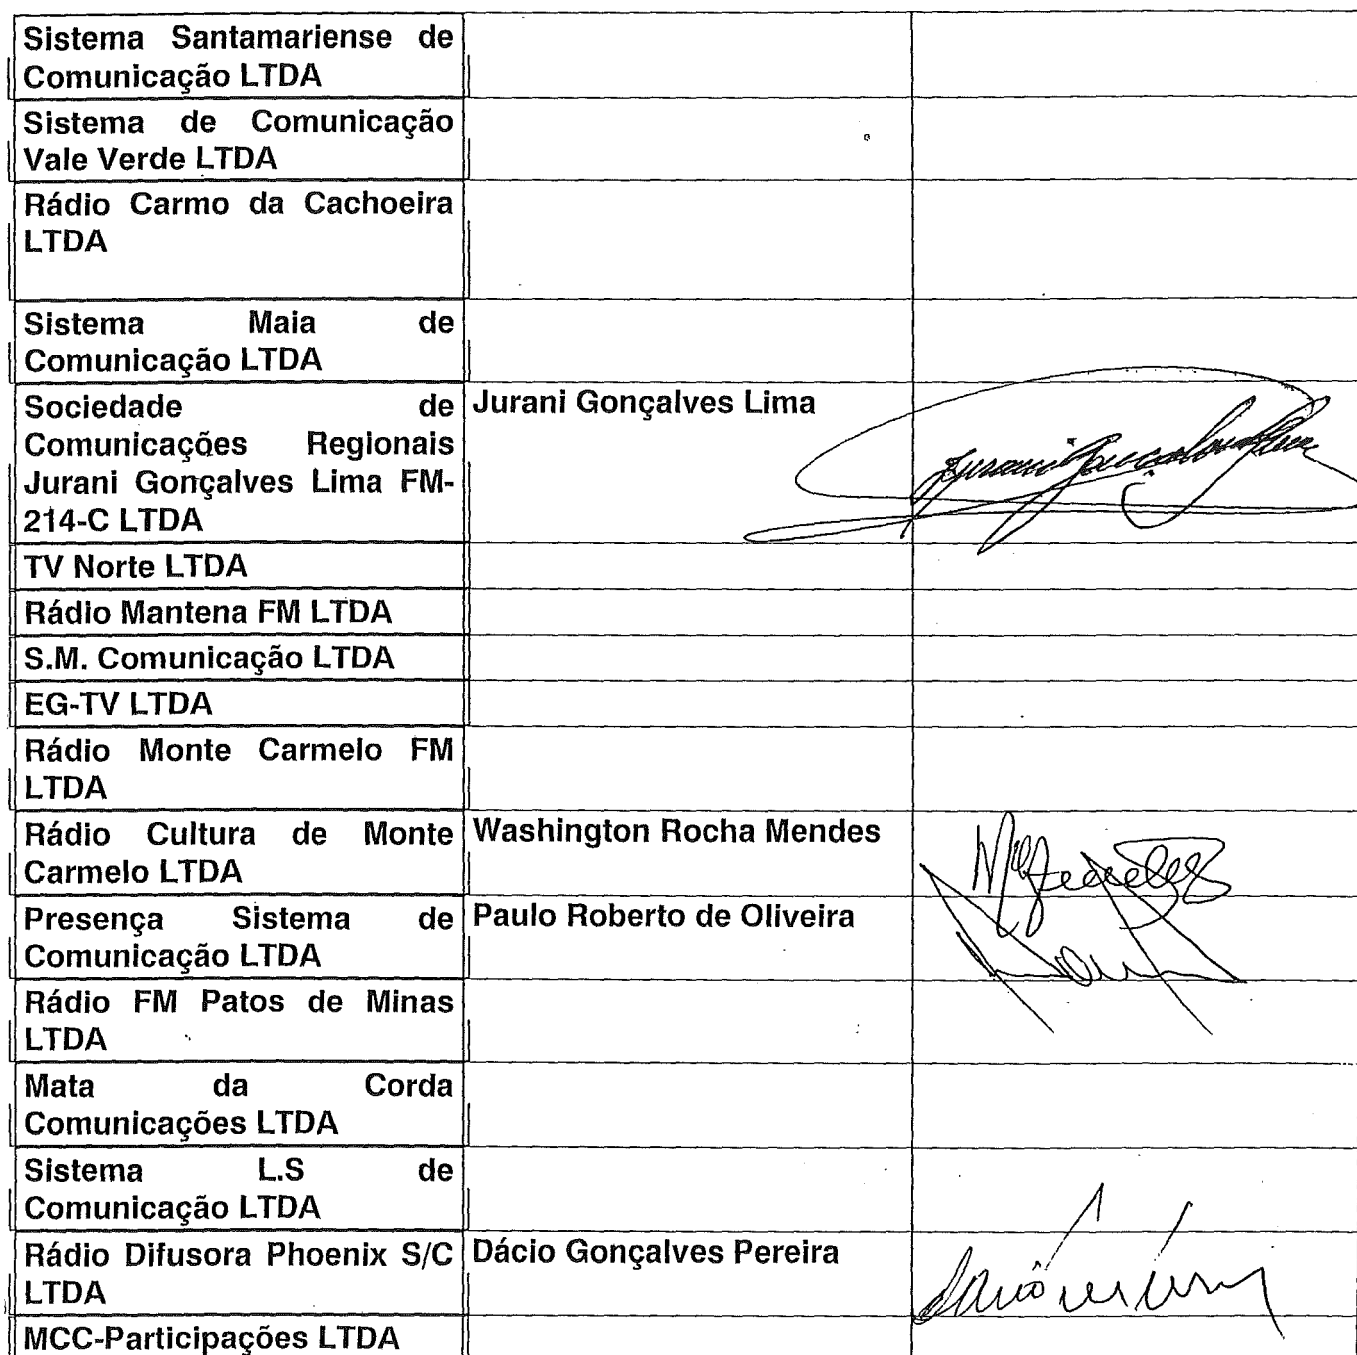 Sistema Santamariense de
Comunicação LTDA
Sistema de Comunicação
Vale Verde LTDA
Rádio Carmo da Cachoeira
LTDA
Sistema Maia de
Comunicação LTDA
Sociedade de
Comunicações Regionais
Jurani Gonçalves Lima FM-
214-C LTDA
Jurani Gonçalves Lima
Jurani Gonçalves Lima
TV Norte LTDA
Rádio Mantena FM LTDA
S.M. Comunicação LTDA
EG-TV LTDA
Rádio Monte Carmelo FM
LTDA
Rádio Cultura de Monte
Carmelo LTDA
Washington Rocha Mendes
Presença Sistema de
Comunicação LTDA
Paulo Roberto de Oliveira
Rádio FM Patos de Minas
LTDA
Mata da Corda
Comunicações LTDA
Sistema L.S de
Comunicação LTDA
Rádio Difusora Phoenix S/C
LTDA
Dácio Gonçalves Pereira
MCC-Participações LTDA